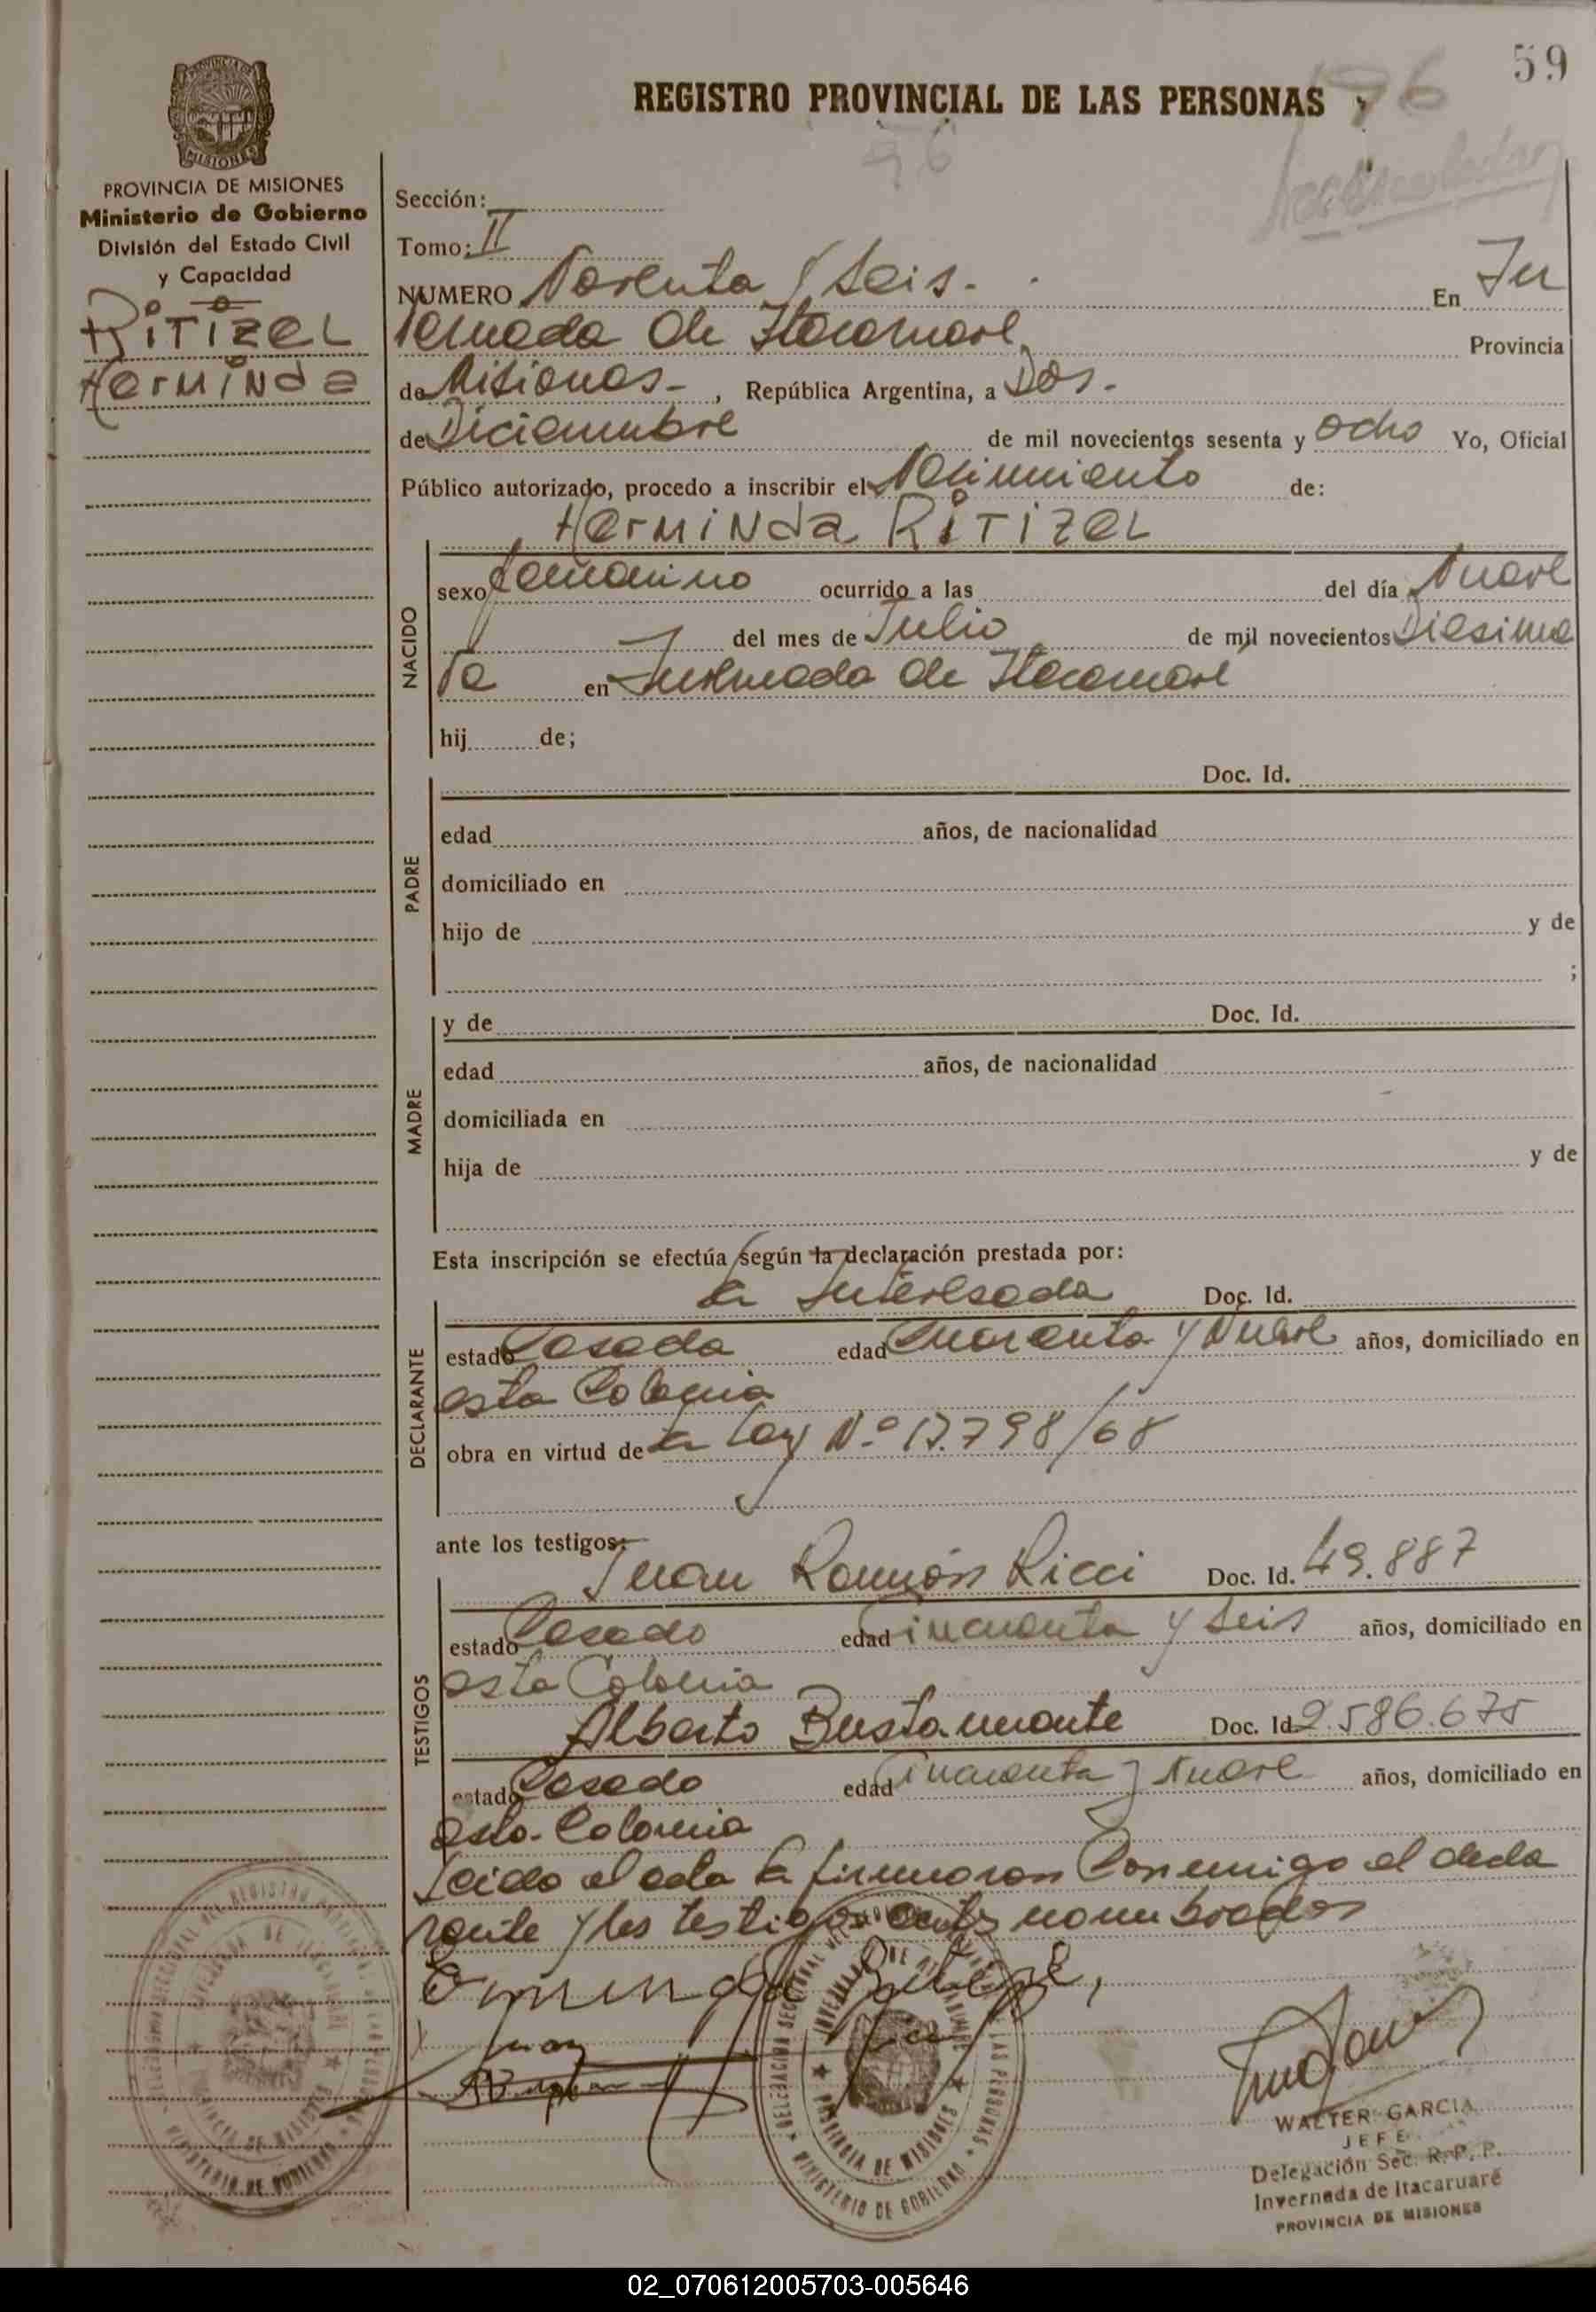 59
REGISTRO PROVINCIAL DE LAS PERSONAS
96
96
PROVINCIA DE MISIONES
Ministerio de Gobierno
División del Estado Civil
y Capacidad
RiTizel
HerMiNda
Sección:
Tomo: II
NUMERO Noventa y Seis. En In
vernada de Itacaruare Provincia
de Misiones, República Argentina, a Dos.
de Diciembre de mil novecientos sesenta y ocho Yo, Oficial
Público autorizado, procedo a inscribir el Nacimiento de:
HerMiNda RiTizel
NACIDO
sexo femenino ocurrido a las del día Nueve
del mes de Julio de mil novecientos Diesinue
ve en Invernada de Itacaruare
hij de;
PADRE
Doc. Id.
edad años, de nacionalidad
domiciliado en
hijo de y de
;
MADRE
y de Doc. Id.
edad años, de nacionalidad
domiciliada en
hija de y de
Esta inscripción se efectúa según la declaración prestada por:
DECLARANTE
la Interesada Doc. Id.
estado Casada edad Cuarenta y Nueve años, domiciliado en
esta Colonia
obra en virtud de la Ley Nº 17.798/68
ante los testigos:
TESTIGOS
Juan Ramón Ricci Doc. Id. 49.887
estado Casado edad Cincuenta y Seis años, domiciliado en
esta Colonia
Alberto Bustamante Doc. Id 2.586.675
estado Casado edad Cuarenta y Nueve años, domiciliado en
esta Colonia
Leido el acta la firmaron Conmigo el decla
rante y los testigos antes nombrados
WALTER GARCIA
JEFE
Delegación Sec. R. P. P.
Invernada de Itacaruaré
PROVINCIA DE MISIONES
02_070612005703-005646